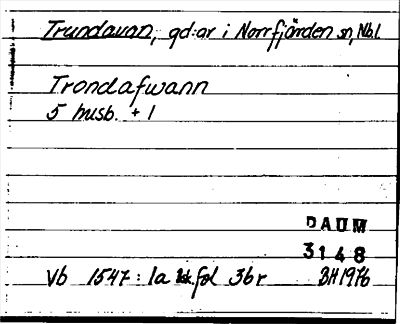 Trundavan, gd:ar i Norrfjärden sn, Nb.l
Trondafwann
5 husb. + 1
DAUM
3148
Vb 1547: 1a fol 3br BH1976